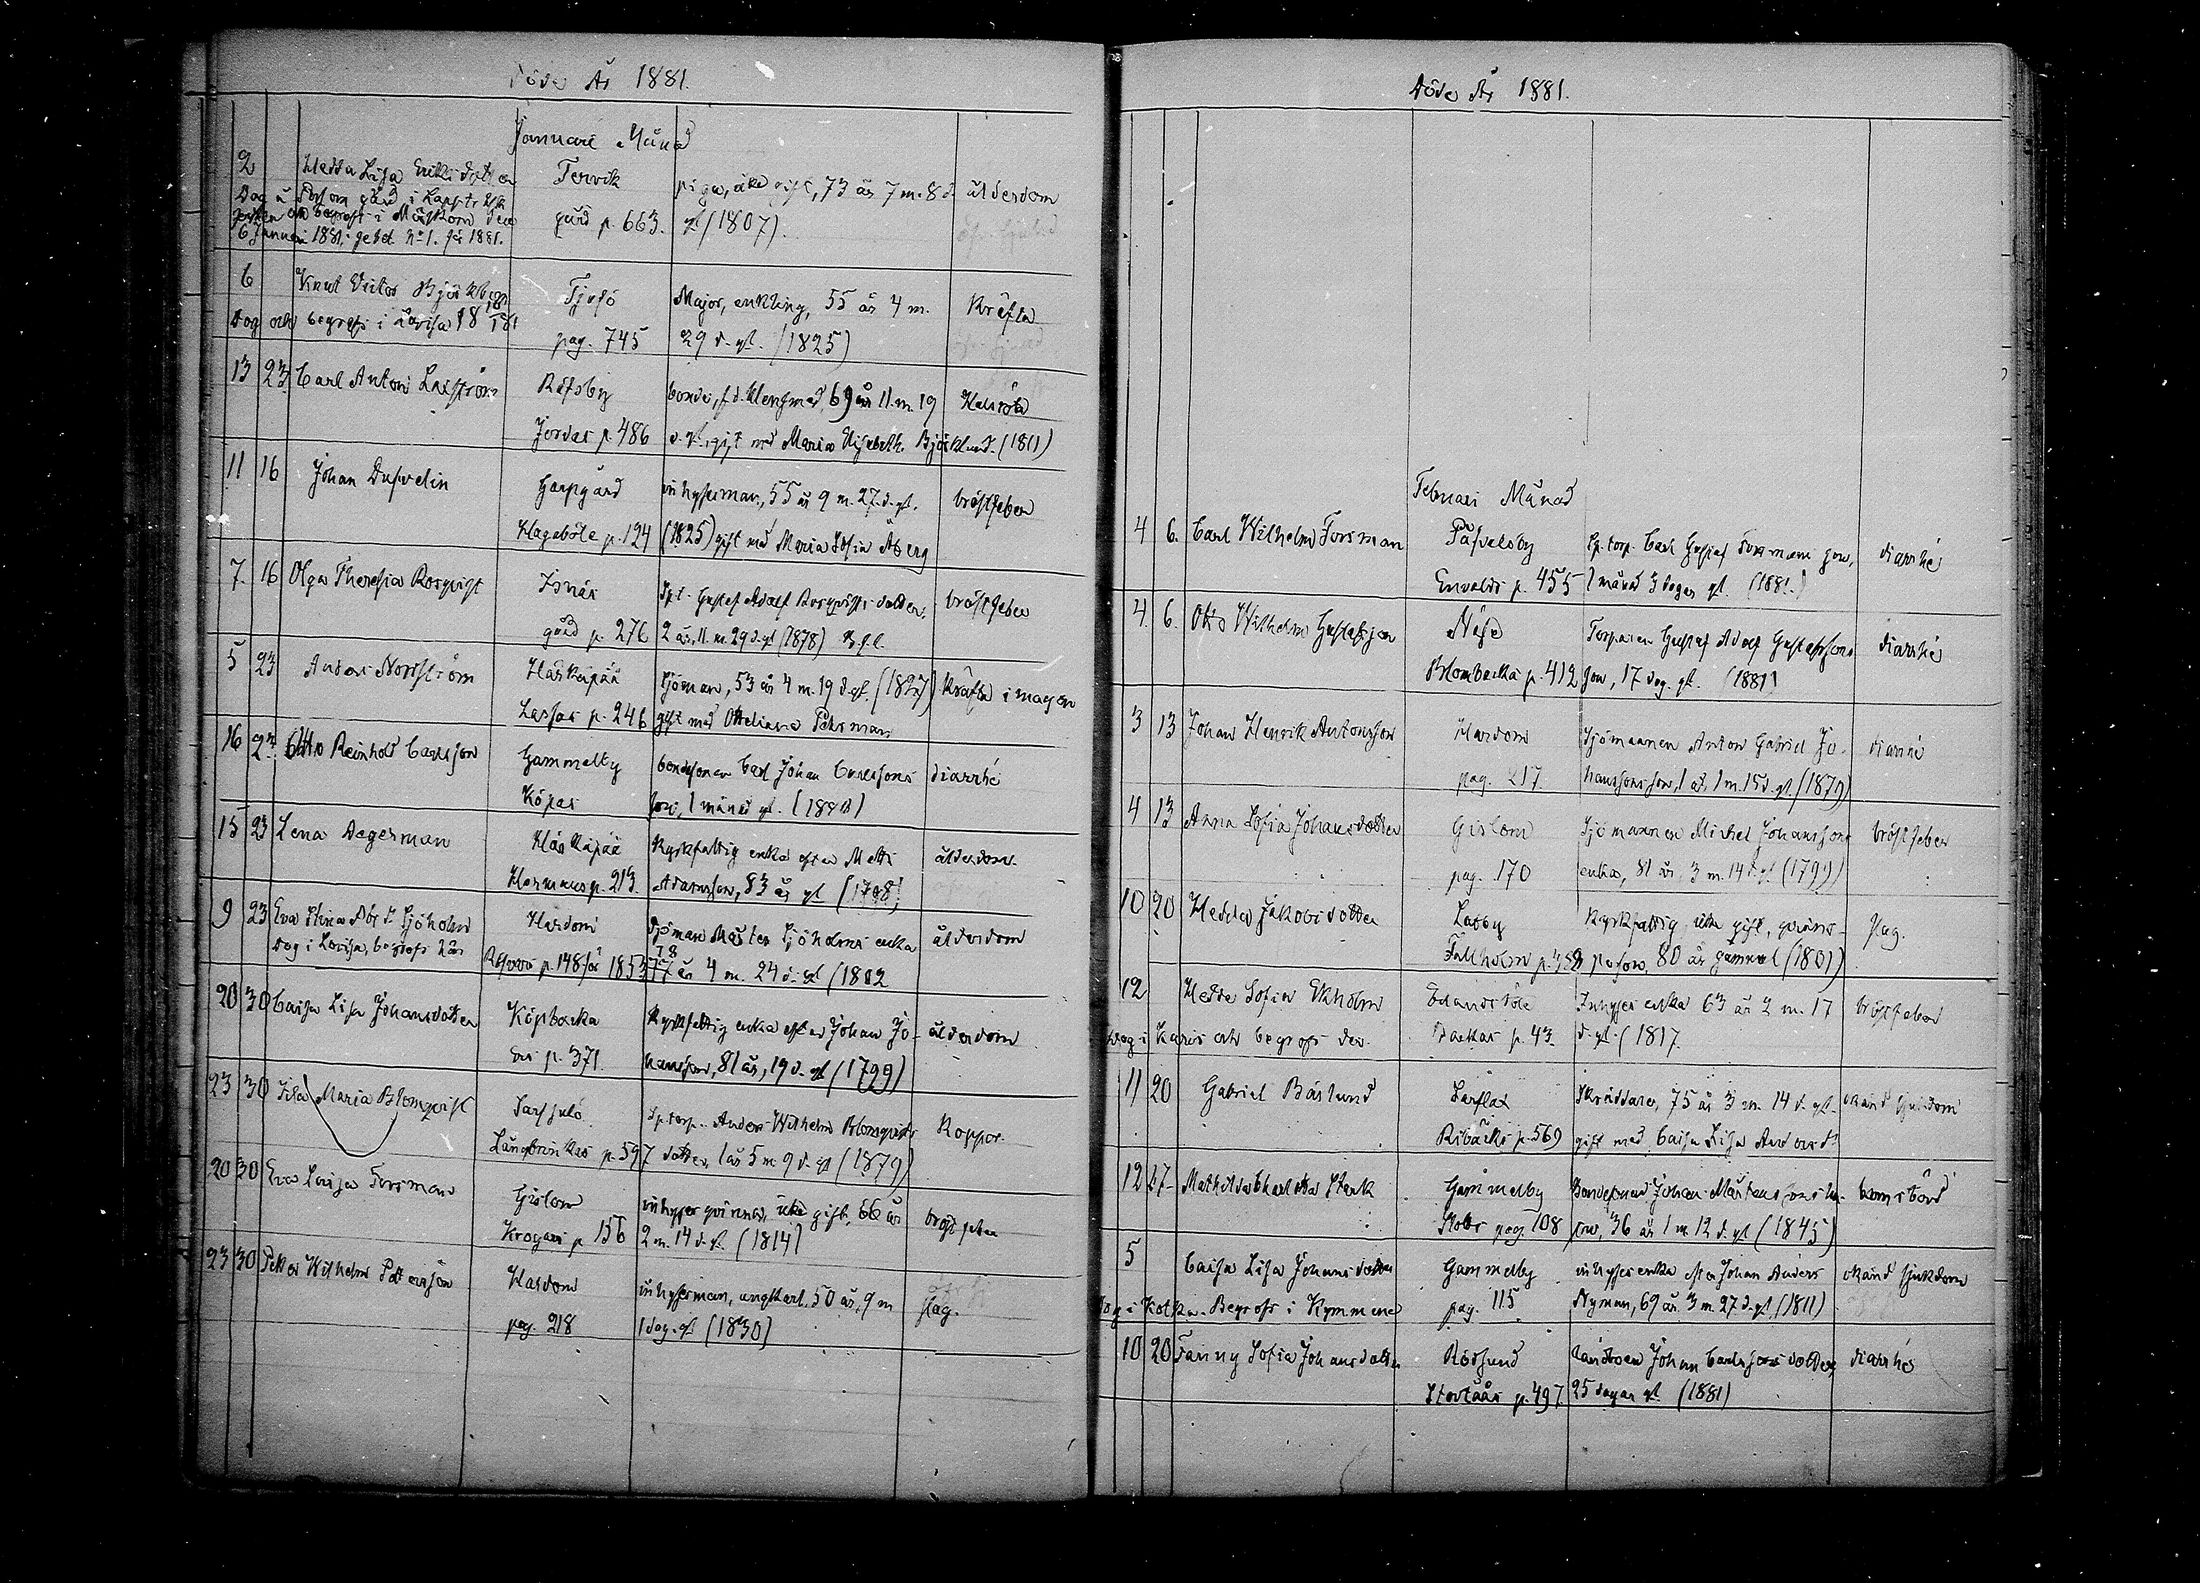 Döde År 1881.
Januari Månad
2 Hedda Lisa Eriksdotter Tervik piga, icke gift, 73 år 7 m. 8 d. ålderdom
Dog å gård i Lappträsk
gård p. 663. gl (1807).
6 Januari 1881. n:o 1. för 1881.
6 Knut Victor Björkbom Tjusö Major, enkling, 55 år 4 m. Kräfta
Dog och begrofs i Lovisa pag. 745 29 d. gl. (1825)
13 23 Carl Anton Laxström Räfsby bonde, f.d. 69 år 11. m. 19
Jordas p. 486 d. gl. gift med Maria Elisabeth Björklund. (1811)
11 16 Johan Garpgård inhyserman, 55 år 9 m. 27. d. gl. bröstfeber
Hagaböle p. 124 (1825) gift med Maria Sofia Åberg
7 16 Olga Theresia Rosqvist Isnäs Gustaf Adolf Rosqvists dotter, bröstfeber
gård p. 276 2 år, 11. m. 29 d. gl (1878)
5 23 Anders Norrström Härkäpää sjöman, 53 år 4 m. 19 d. gl. (1827) Kräfta i magen
Lassas p. 246 gift med Otteliana Pehrman
16 23 Otto Reinhold Carlsson Gammelby bondesonen Carl Johan Carlssons diarrhé
Köpas son, 1 månad gl. (1880)
15 23 Lena Degerman Härkäpää Kyrkfattig enka efter Matts ålderdom.
Hermas p. 213 Adamsson, 83 år gl (1798)
9 23 Eva Stina Abr. dr. Sjöholm Hardom Sjöman Mårten Sjöholms enka ålderdom
Dog i Lovisa, begrofs här p. 148 för 1853 77 78 år 4 m. 24 d. gl (1802
20 30 Caisa Lisa Johansdotter Köpbacka Kyrkfattig enka efter Johan Jo- ålderdom
p. 371. hansson, 81 år, 19 d. gl (1799)
23 30 Ida Maria Blomqvist Sarfsalö Sp. torp. Anders Wilhelm Blomqvists Koppor.
Långbrinkas p. 597 dotter, 1 år 5 m. 9 d. gl (1879)
20 30 Eva Lovisa Forsman Gislom inhyses qvinna, icke gift, 66 år bröstfeber
Krogars p 156 2 m. 14 d. gl. (1814)
23 30 Petter Wilhelm Pettersson Hardom inhyserman, ungkarl, 50 år, 9 m slag.
pag. 218 1 dag. gl (1830)
Döde År 1881.
Februari Månad
4 6. Carl Wilhelm Forsman Påfvalsby Sp. torp. Carl Gustaf Forsmans son, diarrhé
Envalds p. 455 1 månad 3 dagar gl. (1881.)
4 6. Otto Wilhelm Gustafsson Näse Torparen Gustaf Adolf Gustafssons diarrhé
Blombacka p. 412 son, 17 dag. gl. (1881)
3 13 Johan Henrik Antonsson Hardom Sjömannen Anton Gabriel Jo- diarré
pag. 217 hanssons son, 1 år, 1 m. 15 d. gl (1879)
4 13 Anna Sofia Johansdotter Gislom Sjömannen Michel Johanssons bröstfeber
pag. 170 enka, 81 år, 3 m. 14 d. gl (1799)
10 20 Hedda Jakobsdotter Labby Kyrkfattig, icke gift, qvinns- slag.
Fallholm p. person, 80 år gammal (1801)
12 Hedda Sofia Ekholm Inhyses enka 63 år 2 m. 17 bröstfeber
Dog i Karis och begrofs der. Backas p. 43 d. gl. (1817.
11 20 Gabriel Bäslund Sarflax Skräddare, 75 år 3 m. 14 d. gl. okänd sjukdom
Ribäcks p. 569 gift med Caisa Lisa And. dr.
12 27 Mathilda Charlotta Stark Gammelby Bondesonen Johan Mårtenssons hu- barnsbörd
pag. 108 stru, 36 år 1 m. 12 d. gl (1845)
5 Caisa Lisa Johansdotter Gammelby inhyses enka efter Johan Anders okänd sjukdom
Dog i Kotka. Begrofs i Kymmene pag. 115 Nyman, 69 år. 3 m. 27 d. gl. (1811)
10 20 Fanny Sofia Johansdotter Rödsund landboen Johan Carlssons dotter, diarrhé
p. 497. 25 dagar gl. (1881)